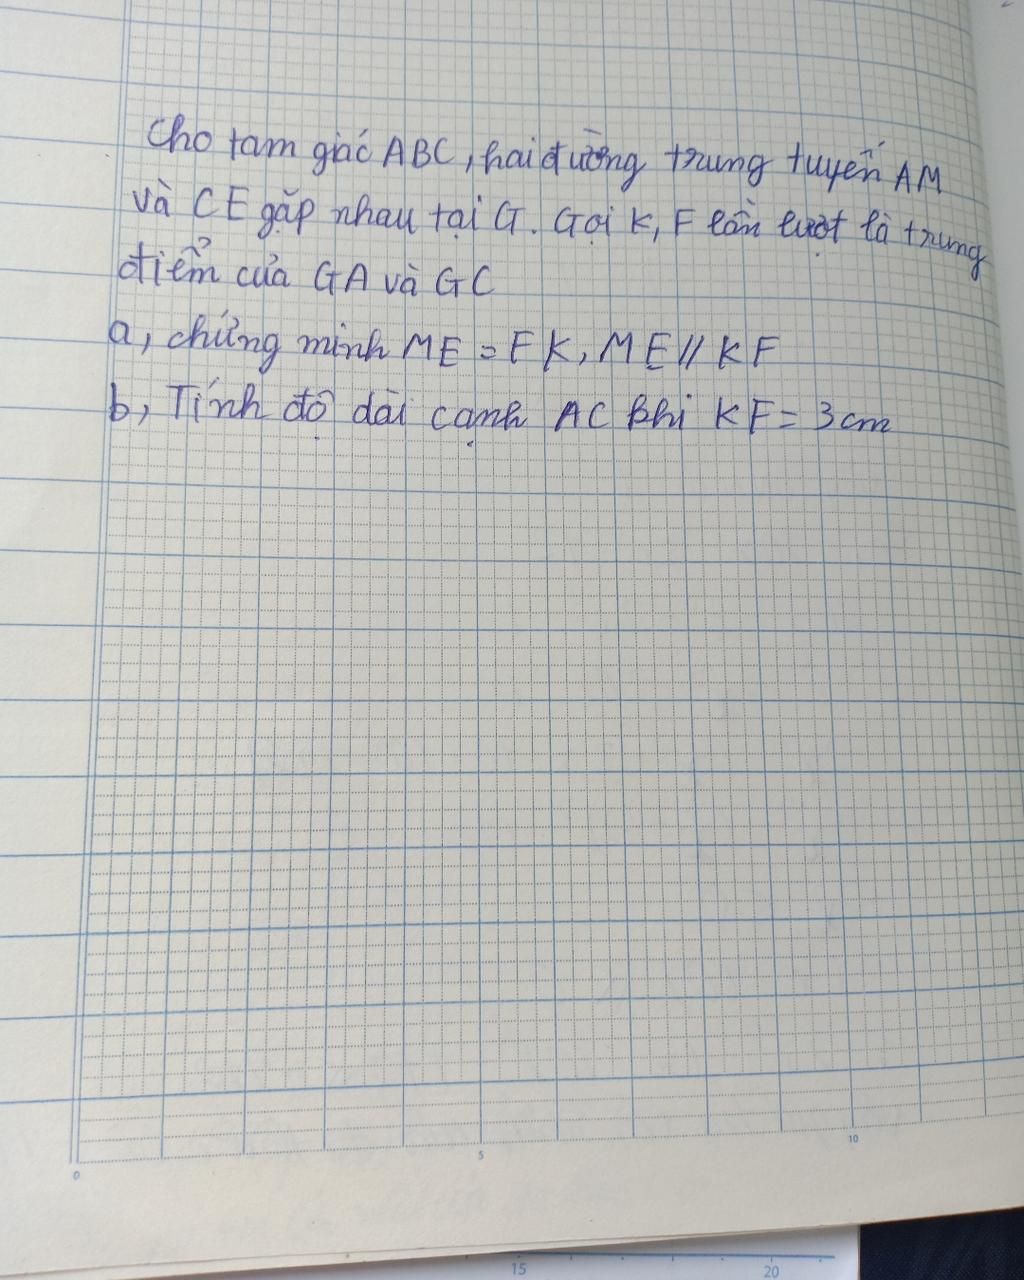 Cho tam giác ABC, hai đường trung tuyến AM
và CE gặp nhau tại G. Gọi K, F lần lượt là trung
điểm của GA và GC
a, chứng minh ME = FK, ME // KF
b, Tính độ dài cạnh AC khi KF = 3cm
0
5
10
15
20